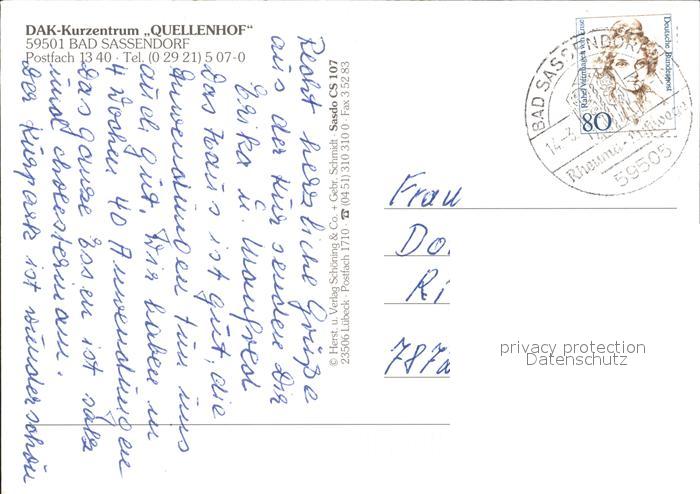 DAK-Kurzentrum „QUELLENHOF"
59501 BAD SASSENDORF
Postfach 13 40 · Tel. (0 29 21) 5 07-0
Recht herzliche Grüße
aus der Kur senden Dir
Erika u. Manfred
Das Haus ist gut, die
Anwendungen tun uns
auch gut. Wir haben in
4 Wochen 40 Anwendungen
das ganze Essen ist salz
und cholesterinarm.
Der Kurpark ist wunderschön
© Herst. u. Verlag Schöning & Co. + Gebr. Schmidt · Sasdo CS 107
23506 Lübeck · Postfach 1710 · ☎ (04 51) 310 310 0 · Fax 3 52 83
Deutsche Bundespost
Rahel Varnhagen von Ense
80
BAD SASSENDORF
59505
Frau
Do
Ri
787
privacy protection
Datenschutz